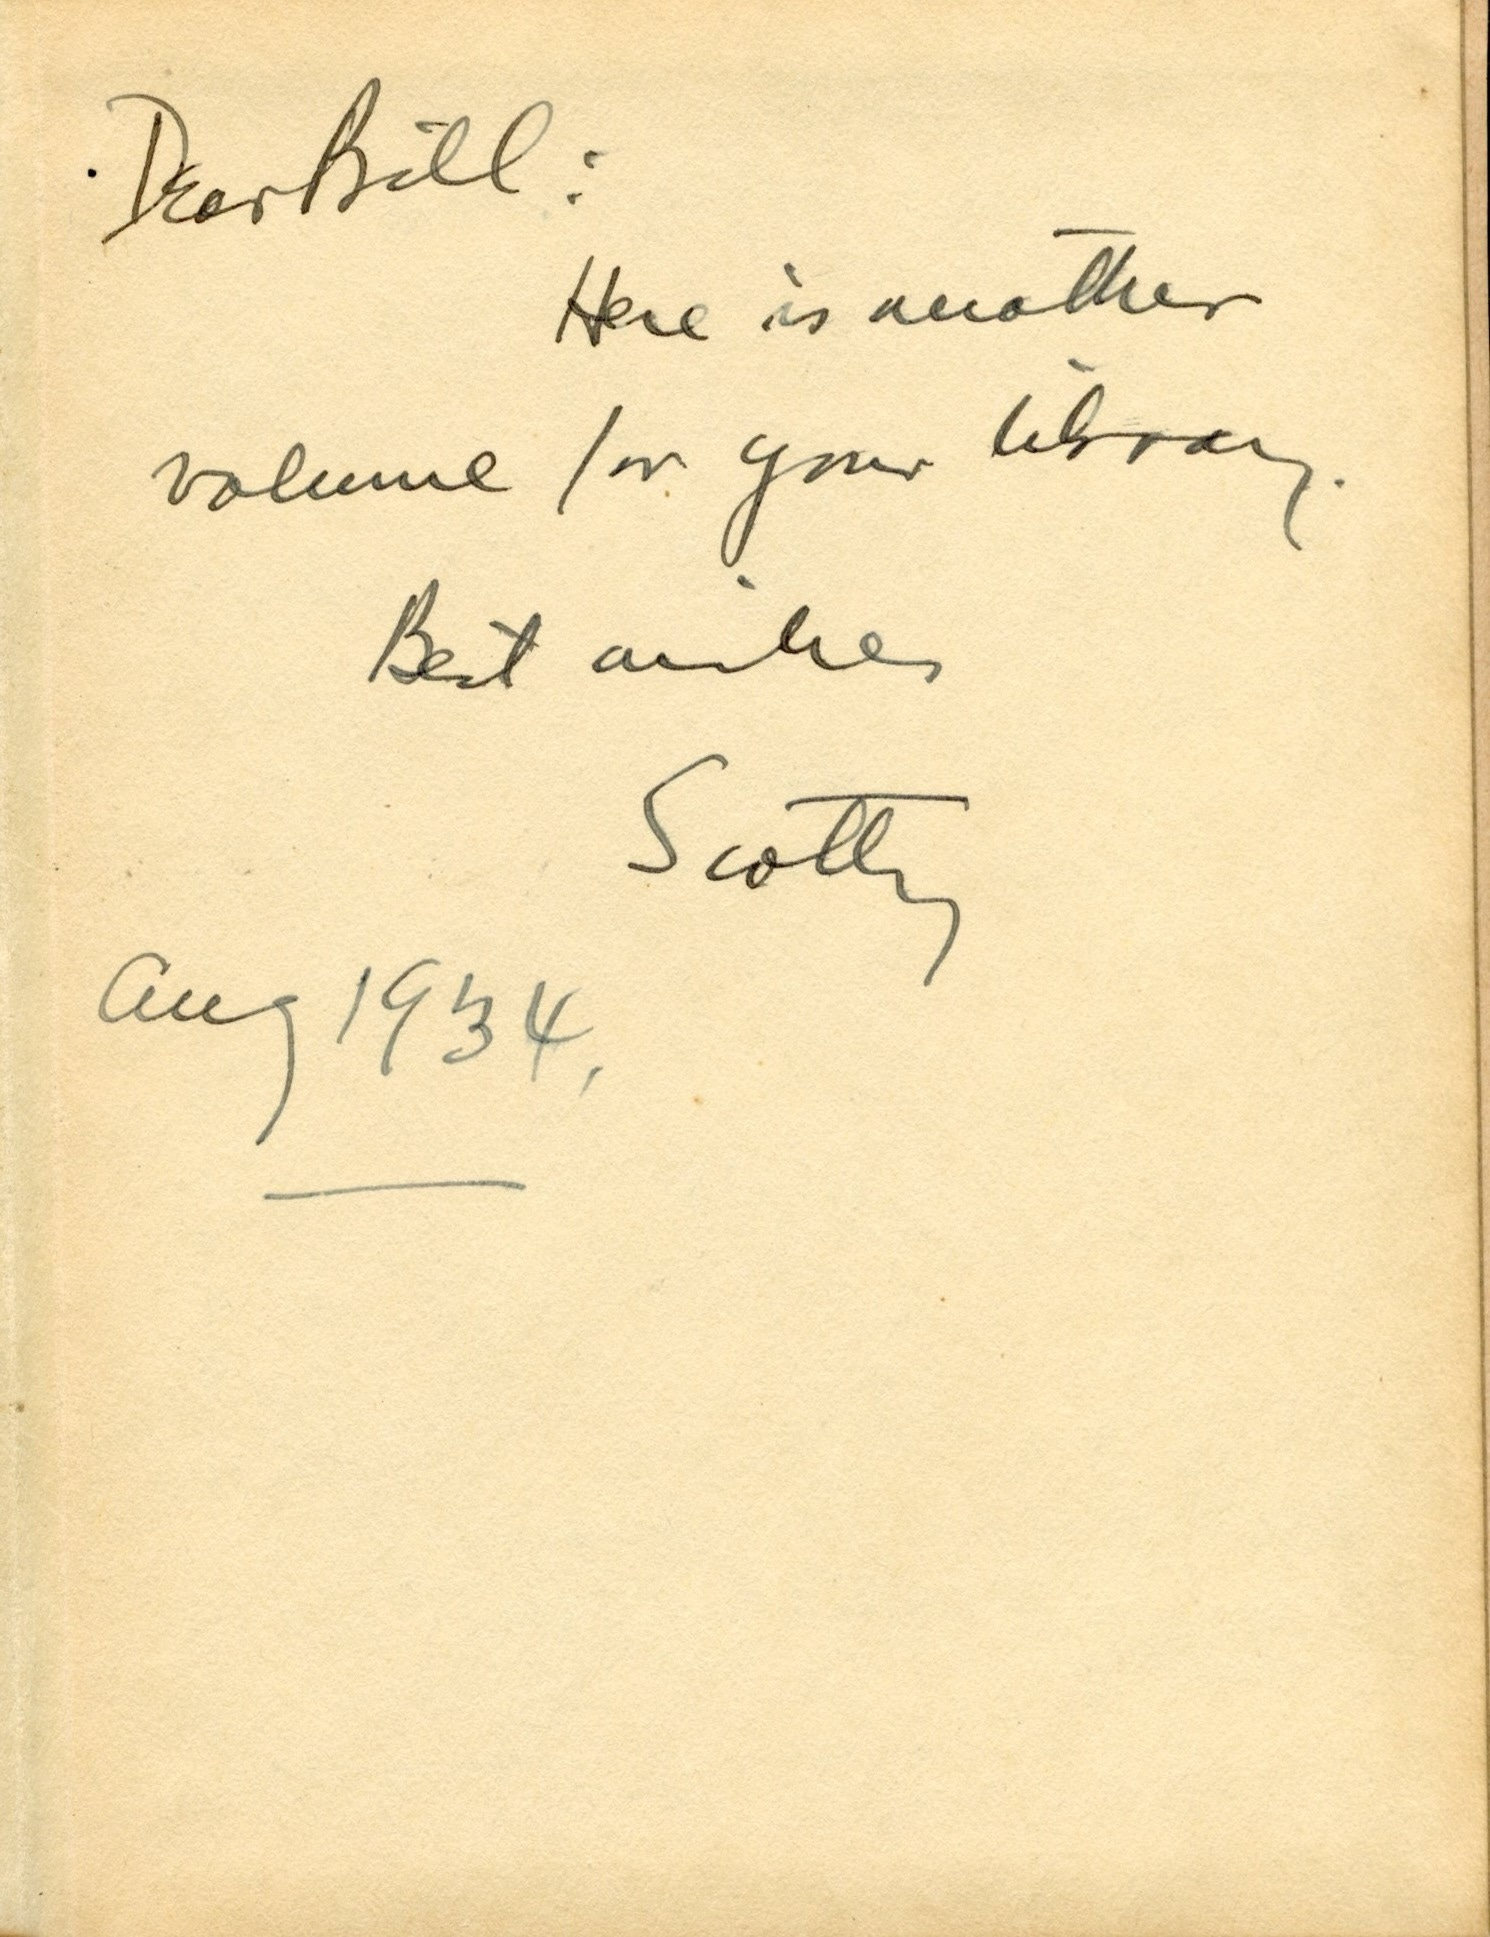 Dear Bill:
Here is another
volume for your library.
Best wishes
Scotty
Aug 1934.